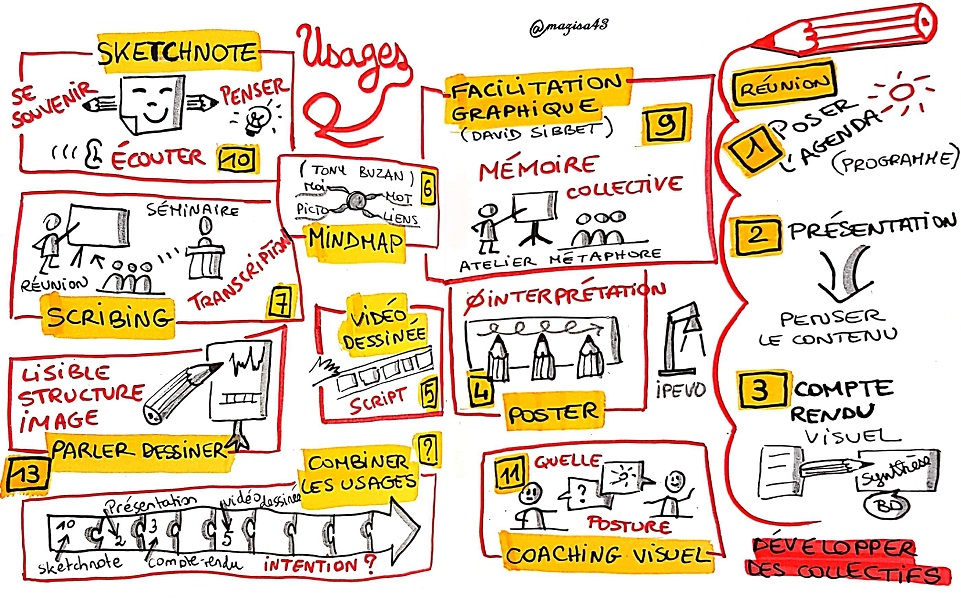 @mazisa43
Usages
SKETCHNOTE
SE
SOUVENIR
PENSER
ÉCOUTER
10
(TONY BUZAN)
MOI
MOT
PICTO
LIENS
6
MINDMAP
FACILITATION
GRAPHIQUE
(DAVID SIBBET)
9
MÉMOIRE
COLLECTIVE
ATELIER MÉTAPHORE
SÉMINAIRE
RÉUNION
TRANSCRIPTION
7
SCRIBING
VIDÉO
DESSINÉE
SCRIPT
5
ØINTERPRÉTATION
4
POSTER
iPEVO
LISIBLE
STRUCTURE
IMAGE
PARLER DESSINER
13
COMBINER
LES USAGES
?
Présentation
vidéo
dessinée
10
2
3
5
sketchnote
compte-rendu
INTENTION ?
11
QUELLE
?
POSTURE
COACHING VISUEL
RÉUNION
1
POSER
L'AGENDA
(PROGRAMME)
2
PRÉSENTATION
PENSER
LE CONTENU
3
COMPTE
RENDU
VISUEL
Synthèse
BD
DÉVELOPPER
DES COLLECTIFS